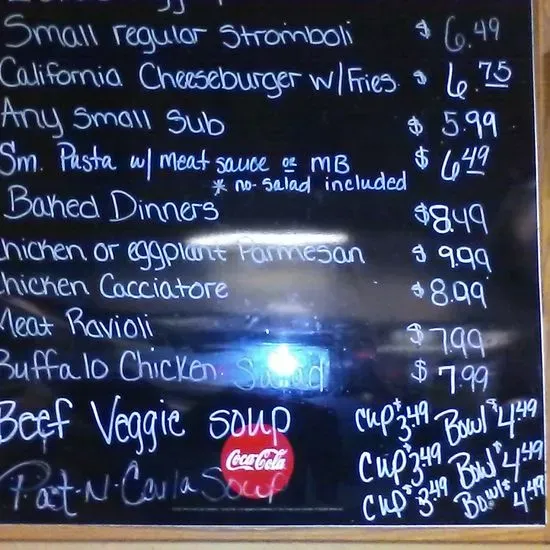 Small regular Stromboli $ 6.49
California Cheeseburger w/Fries $ 6.75
Any Small Sub $ 5.99
Sm. Pasta w/ meat sauce or MB $ 6.49
* no salad included
Baked Dinners $8.49
hicken or eggplant Parmesan $ 9.99
hicken Cacciatore $8.99
Meat Ravioli $ 7.99
Buffalo Chicken Salad $ 7.99
Beef Veggie soup Cup $3.49 Bowl $4.49
Cup $3.49 Bowl $4.49
Soup Cup $3.49 Bowl $4.49
Coca-Cola